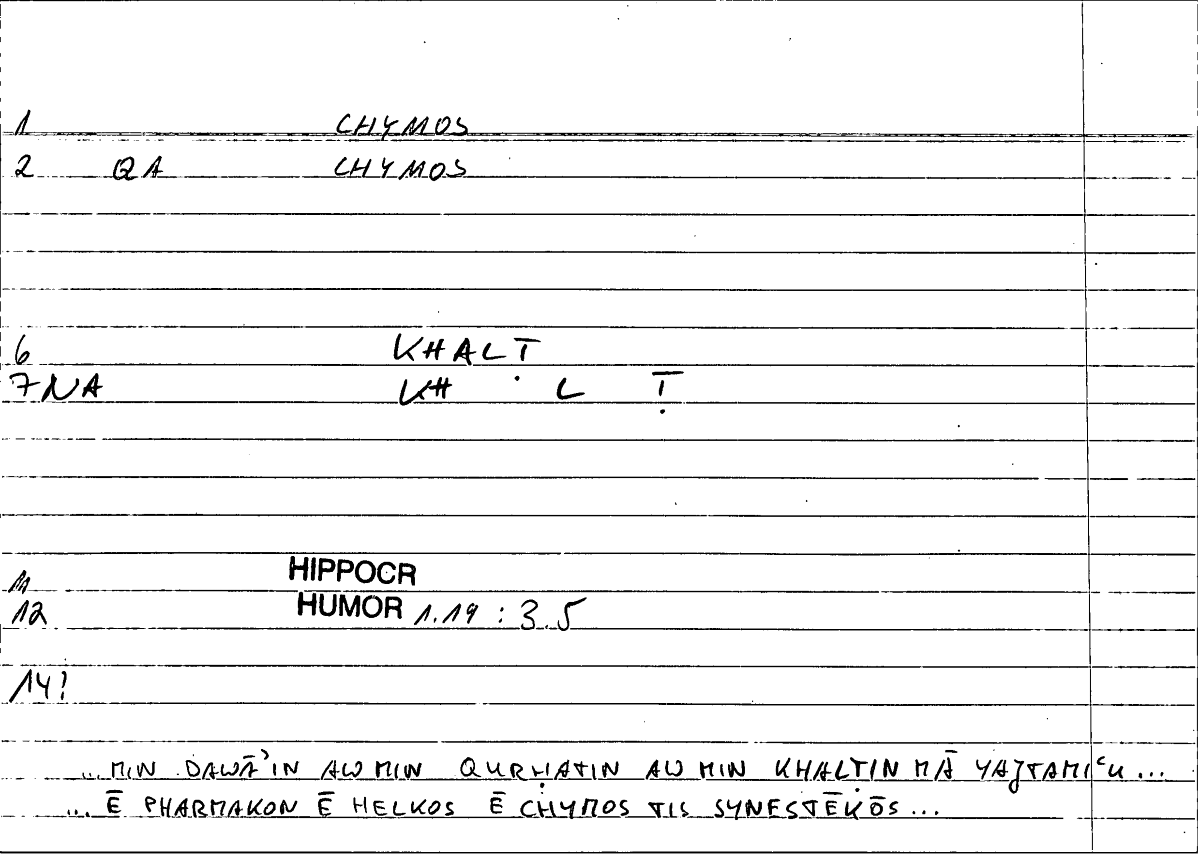 1 CHYMOS
2 QA CHYMOS
6 KHALṬ
7 NA KH L Ṭ
11 HIPPOCR
12 HUMOR 1.19 : 3.5
14!
... MIN DAWĀʾIN AW MIN QURḤATIN AW MIN KHALṬIN MĀ YAJTAMIʿU ...
... Ē PHARMAKON Ē HELKOS Ē CHYMOS TIS SYNESTĒKŌS ...